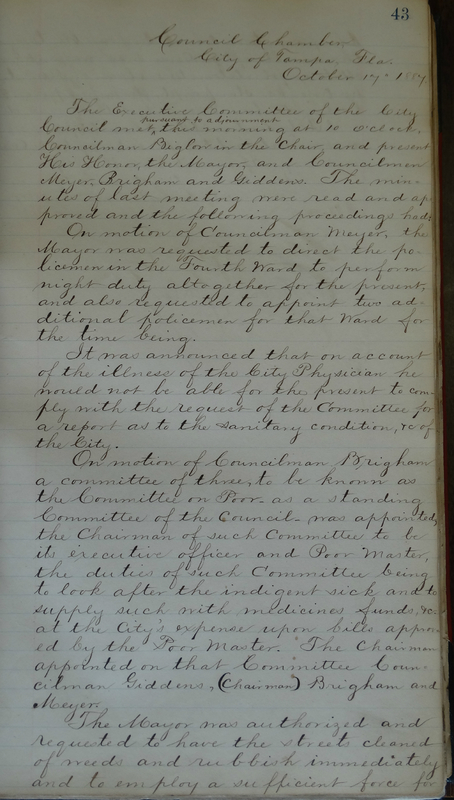 43
Council Chamber
City of Tampa, Fla.
October 17th 1887
The Executive Committee of the City
pursuant to adjournment
Council met, this morning at 10 o'clock,
Councilman Biglow in the Chair, and present
His Honor, the Mayor, and Councilmen
Meyer, Brigham and Giddens. The min-
utes of last meeting were read and ap-
proved and the following proceedings had:
On motion of Councilman Meyer, the
Mayor was requested to direct the po-
licemen in the Fourth Ward, to perform
night duty altogether for the present,
and also requested to appoint two ad-
ditional policemen for that Ward for
the time being.
It was announced that on account
of the illness of the City Physician he
would not be able for the present to com-
ply with the request of the Committee for
a report as to the sanitary condition, &c of
the City.
On motion of Councilman Brigham
a committee of three, to be known as
the Committee on Poor- as a standing
Committee of the Council- was appointed,
the Chairman of such Committee to be
its executive officer and Poor Master,
the duties of such Committee being
to look after the indigent sick and to
supply such with medicines funds, &c
at the City's expense upon bills approv-
ed by the Poor Master. The Chairman
appointed on that Committee Coun-
cilman Giddens, (Chairman) Brigham and
Meyer.
The Mayor was authorized and
requested to have the streets cleaned
of weeds and rubbish immediately
and to employ a sufficient force for